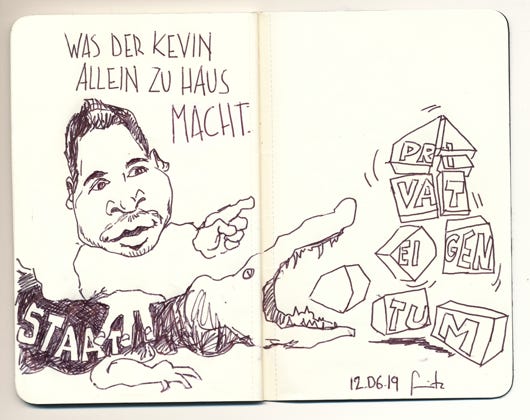 WAS DER KEVIN
ALLEIN ZU HAUS
MACHT.
PRI
VAT
EI GEN
TUM
STAAT
12.06.19